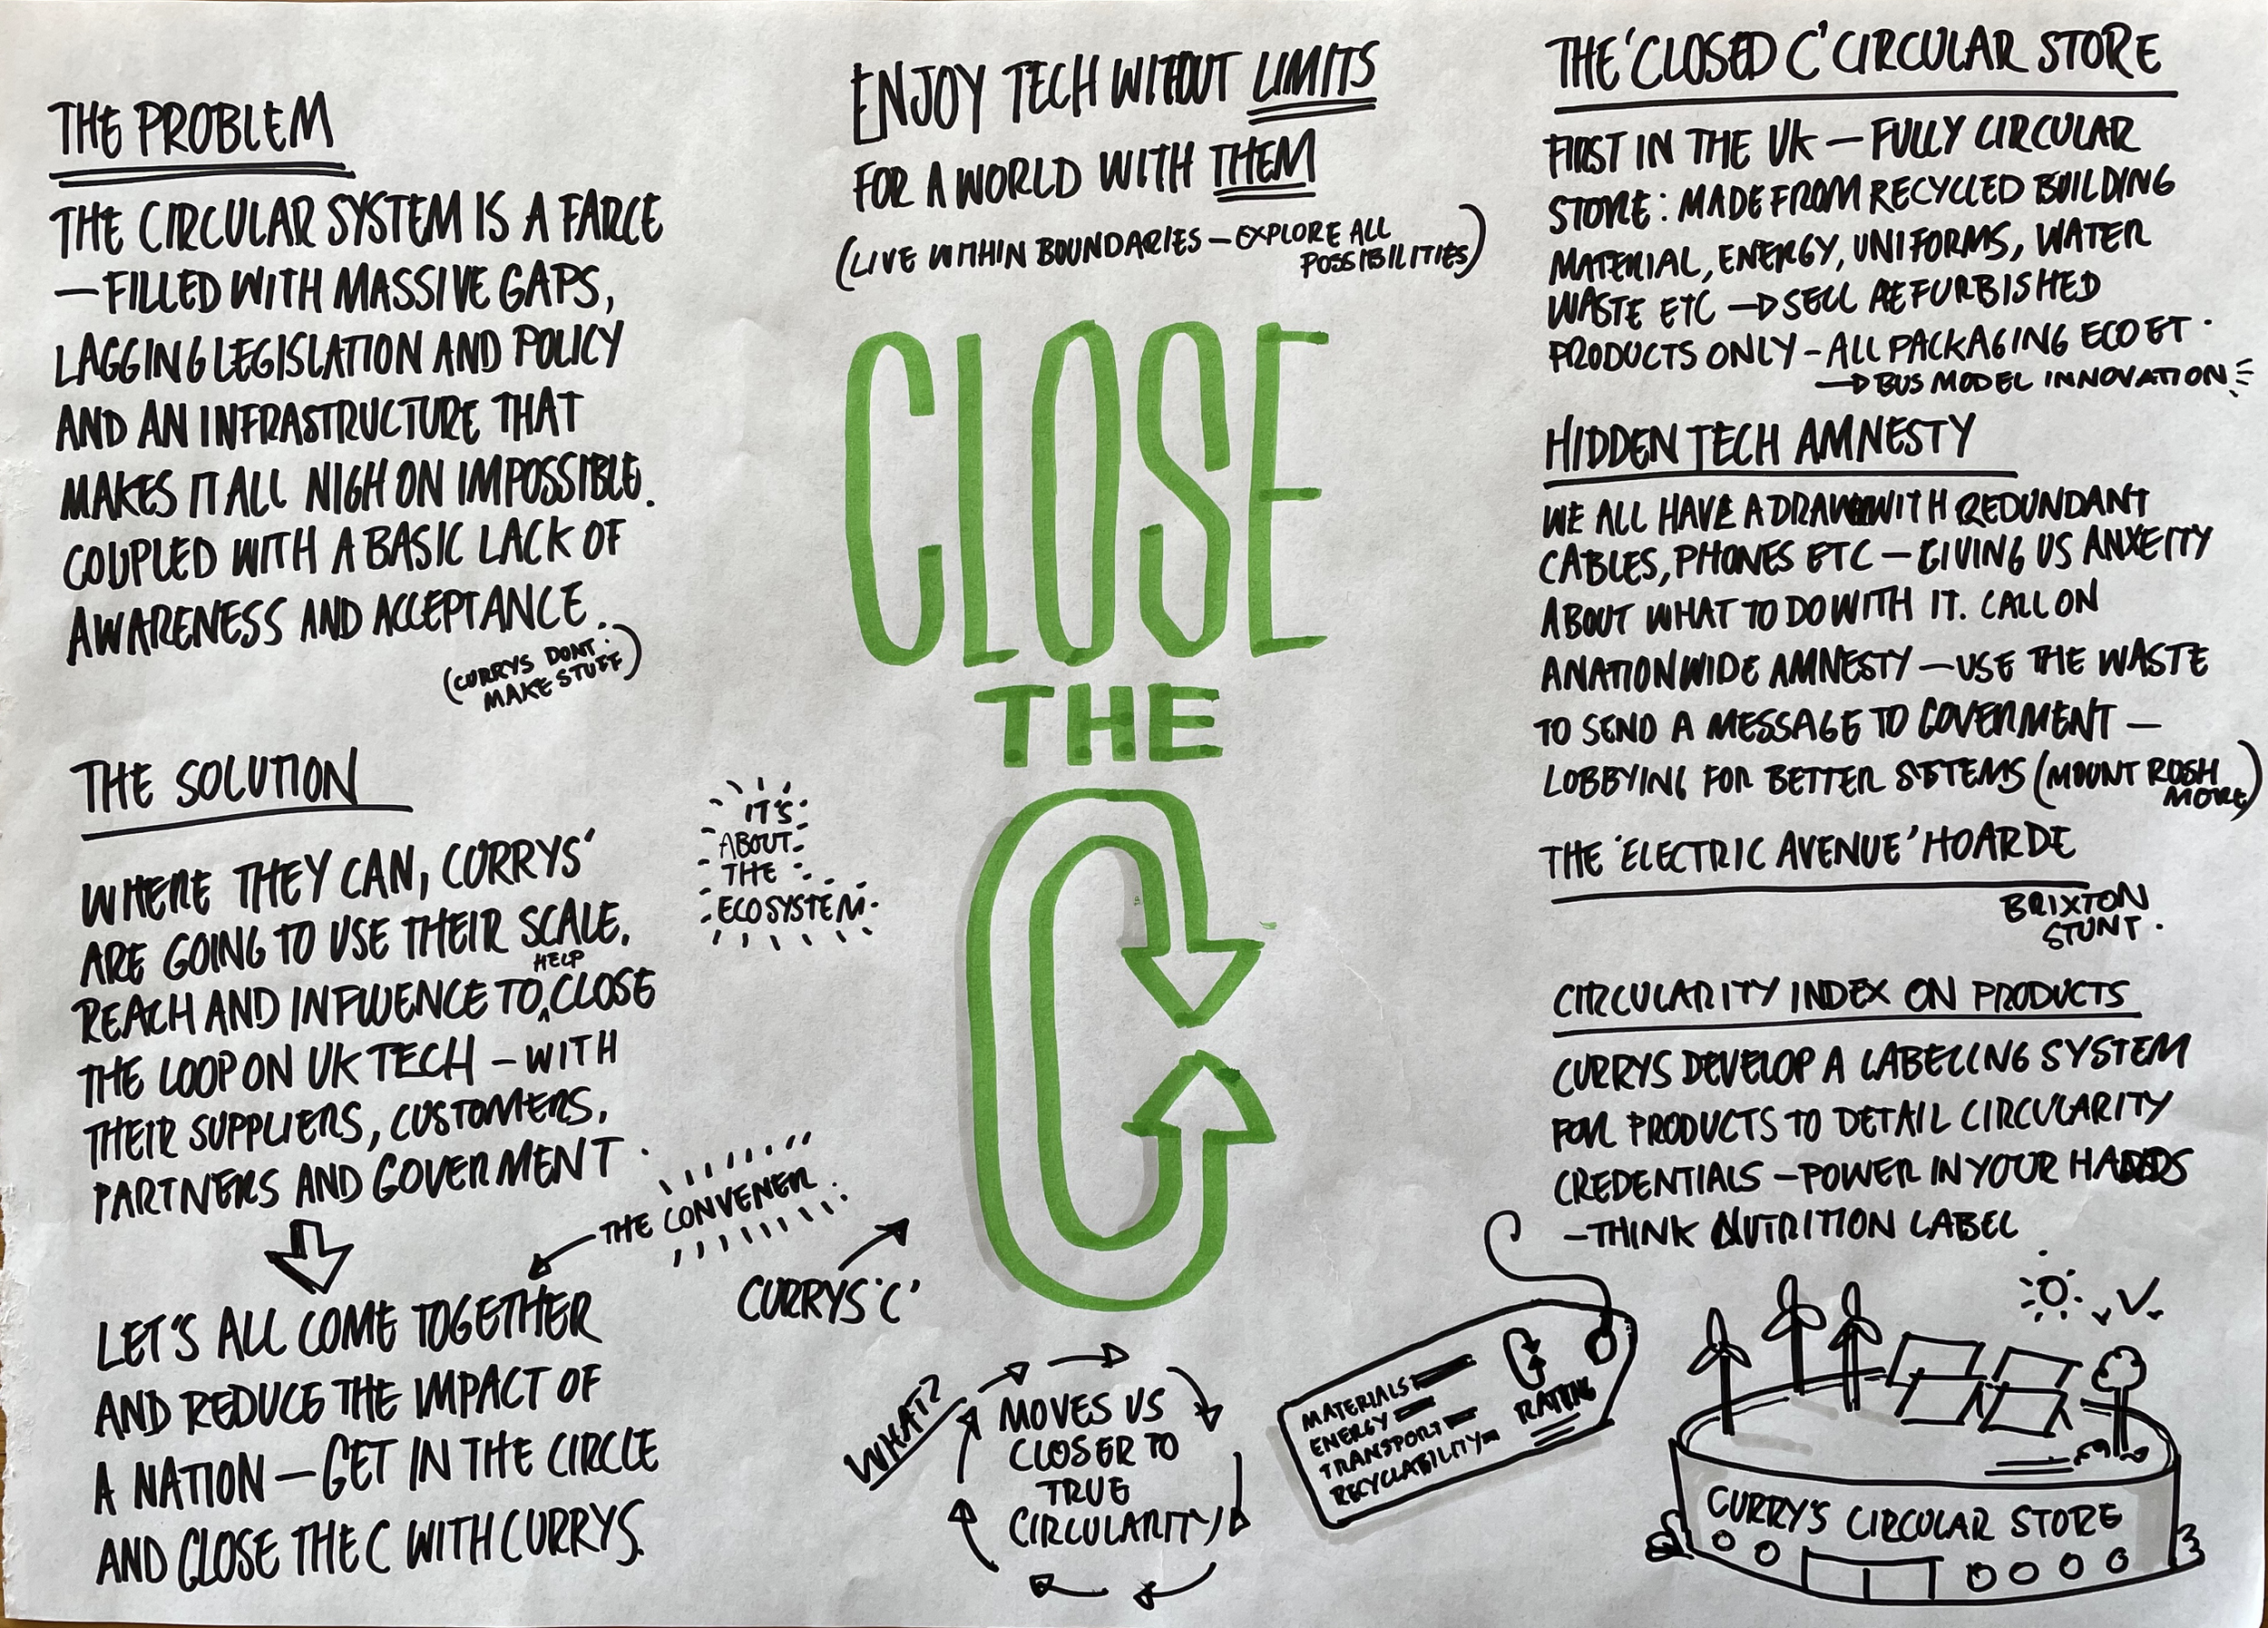 THE PROBLEM
THE CIRCULAR SYSTEM IS A FARCE
— FILLED WITH MASSIVE GAPS,
LAGGING LEGISLATION AND POLICY
AND AN INFRASTRUCTURE THAT
MAKES IT ALL NIGH ON IMPOSSIBLE.
COUPLED WITH A BASIC LACK OF
AWARENESS AND ACCEPTANCE.
(CURRYS DONT
MAKE STUFF)
THE SOLUTION
WHERE THEY CAN, CURRYS'
ARE GOING TO USE THEIR SCALE,
REACH AND INFLUENCE TO HELP CLOSE
THE LOOP ON UK TECH — WITH
THEIR SUPPLIERS, CUSTOMERS,
PARTNERS AND GOVERMENT.
THE CONVENER
LET'S ALL COME TOGETHER
AND REDUCE THE IMPACT OF
A NATION — GET IN THE CIRCLE
AND CLOSE THE C WITH CURRYS.
ENJOY TECH WITHOUT LIMITS
FOR A WORLD WITH THEM
(LIVE WITHIN BOUNDARIES — EXPLORE ALL
POSSIBILITIES)
CLOSE
THE
C
IT'S
ABOUT
THE
ECOSYSTEM.
CURRYS 'C'
WHAT?
MOVES US
CLOSER TO
TRUE
CIRCULARITY
THE 'CLOSED C' CIRCULAR STORE
FIRST IN THE UK — FULLY CIRCULAR
STORE: MADE FROM RECYCLED BUILDING
MATERIAL, ENERGY, UNIFORMS, WATER
WASTE ETC → SELL REFURBISHED
PRODUCTS ONLY - ALL PACKAGING ECO ET.
→ BUS MODEL INNOVATION
HIDDEN TECH AMNESTY
WE ALL HAVE A DRAW WITH REDUNDANT
CABLES, PHONES ETC — GIVING US ANXEITY
ABOUT WHAT TO DO WITH IT. CALL ON
A NATIONWIDE AMNESTY — USE THE WASTE
TO SEND A MESSAGE TO GOVERMENT —
LOBBYING FOR BETTER SYSTEMS (MOUNT RUSH
MORE)
THE 'ELECTRIC AVENUE' HOARDE
BRIXTON
STUNT.
CIRCULARITY INDEX ON PRODUCTS
CURRYS DEVELOP A LABELING SYSTEM
FOR PRODUCTS TO DETAIL CIRCULARITY
CREDENTIALS — POWER IN YOUR HANDS
- THINK NUTRITION LABEL
MATERIALS
ENERGY
TRANSPORT
RECYCLABILITY
C
RATING
CURRY'S CIRCULAR STORE